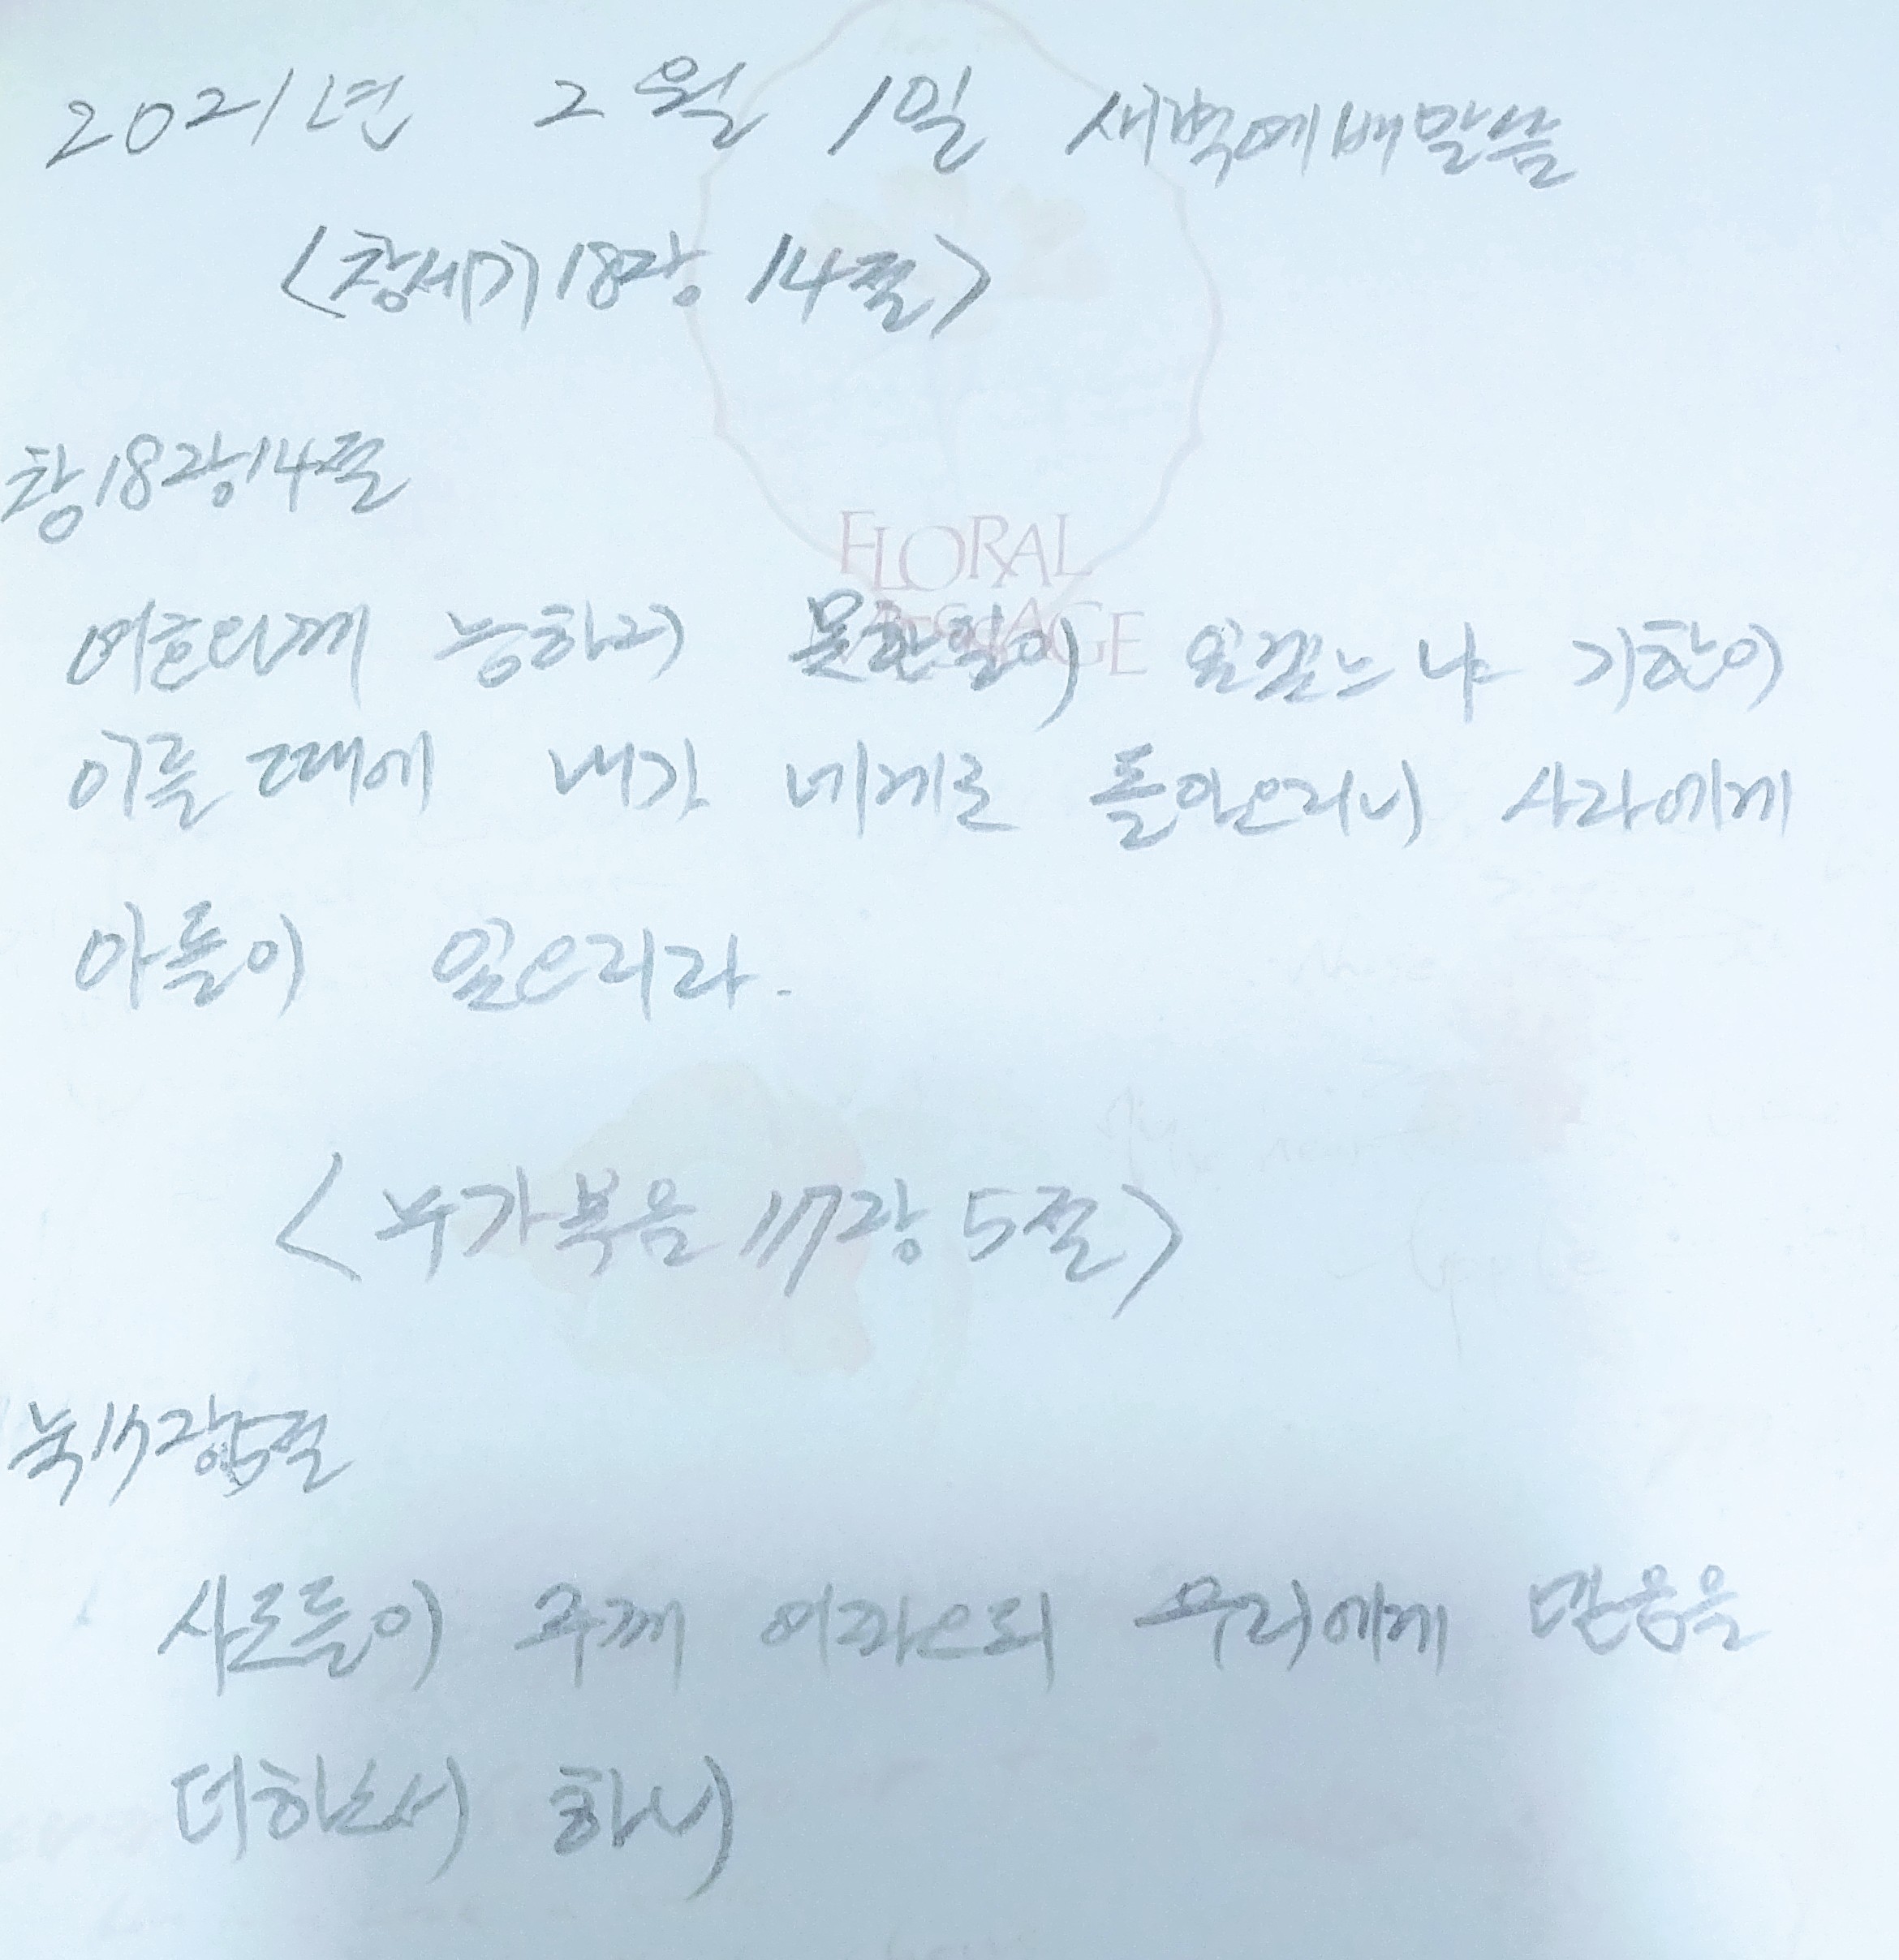 2021년 2월 1일 새벽예배말씀
<창세기18장 14절>
창18장14절
FLORAL
MESSAGE
여호와께 능하지 못한일이 있겠느냐 기한이
이를 때에 내가 네게로 돌아오리니 사라에게
아들이 있으리라.
<누가복음 17장 5절>
눅17장5절
사도들이 주께 여짜오되 우리에게 믿음을
더하소서 하니